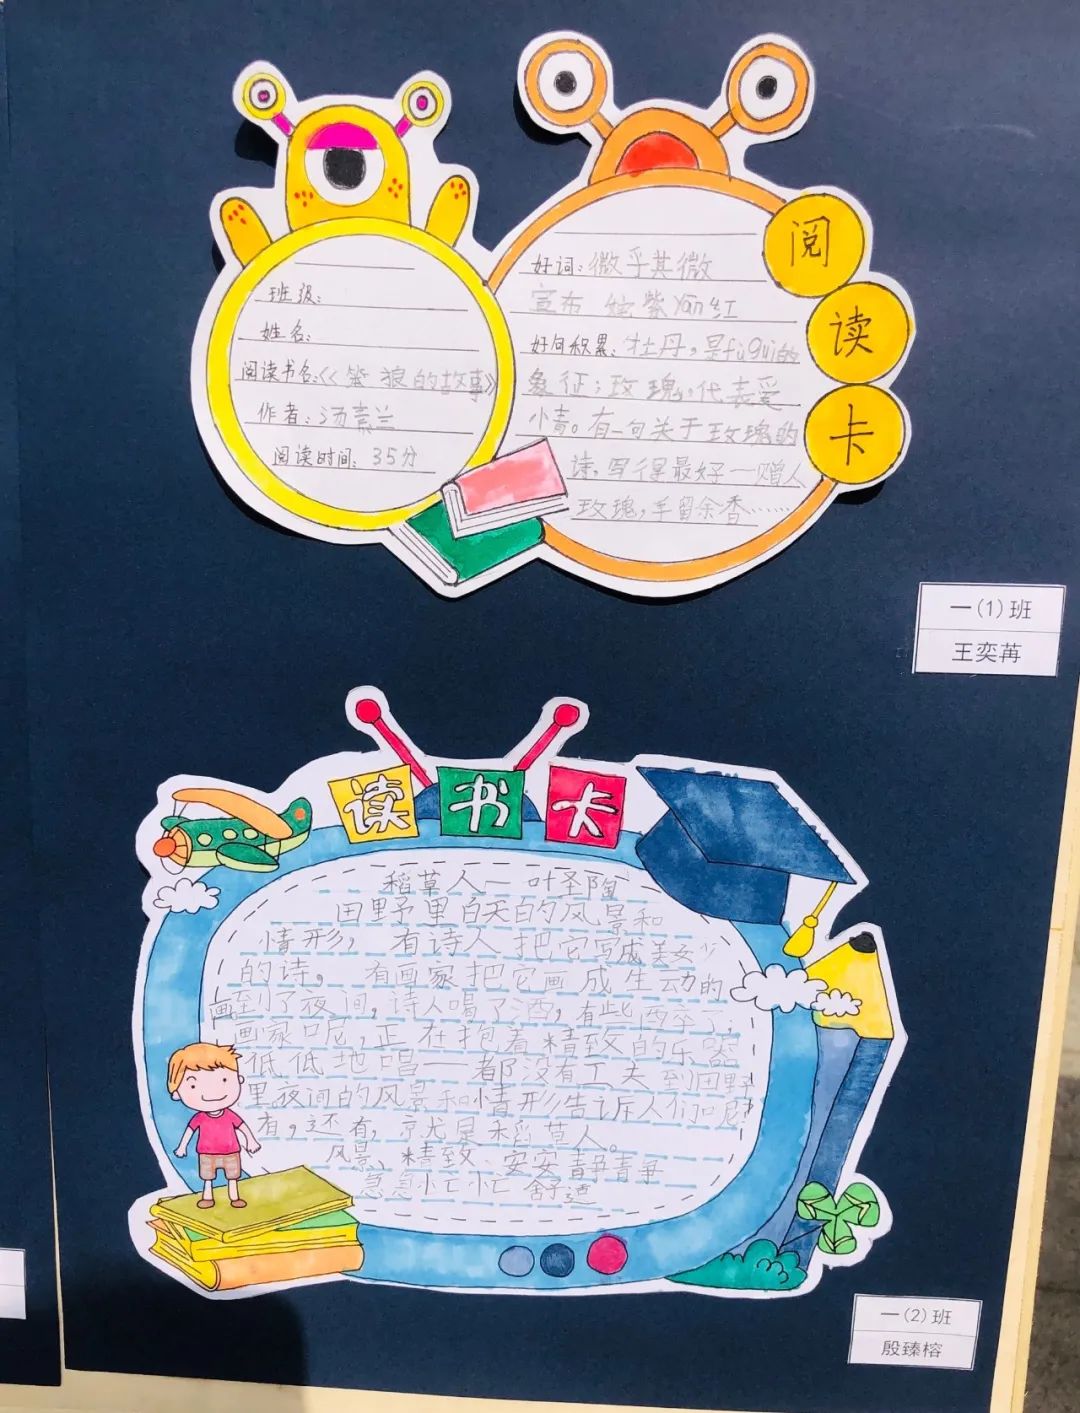 班级：
姓名：
阅读书名：《笨狼的故事》
作者：汤素兰
阅读时间：35分
阅
读
卡
好词：微乎其微
宣布 姹紫yān红
好句积累：牡丹，是fùguì的
象征；玫瑰，代表爱
小青。有一句关于玫瑰的
诗，写得最好一赠人
玫瑰，手留余香……
一(1)班
王奕苒
读书卡
稻草人一叶圣陶
田野里白天的风景和
情形，有诗人把它写成美妙
的诗，有画家把它画成生动的
画到了夜间，诗人喝了酒，有些酉卒了；
画家口尼，正在抱着精致的乐器
低低地唱一一都没有工夫到田野
里夜间的风景和情形告诉人们口尼？
有，还有，就是稻草人。
风景、精致、安安静静
急急忙忙 舒适
一(2)班
殷臻榕